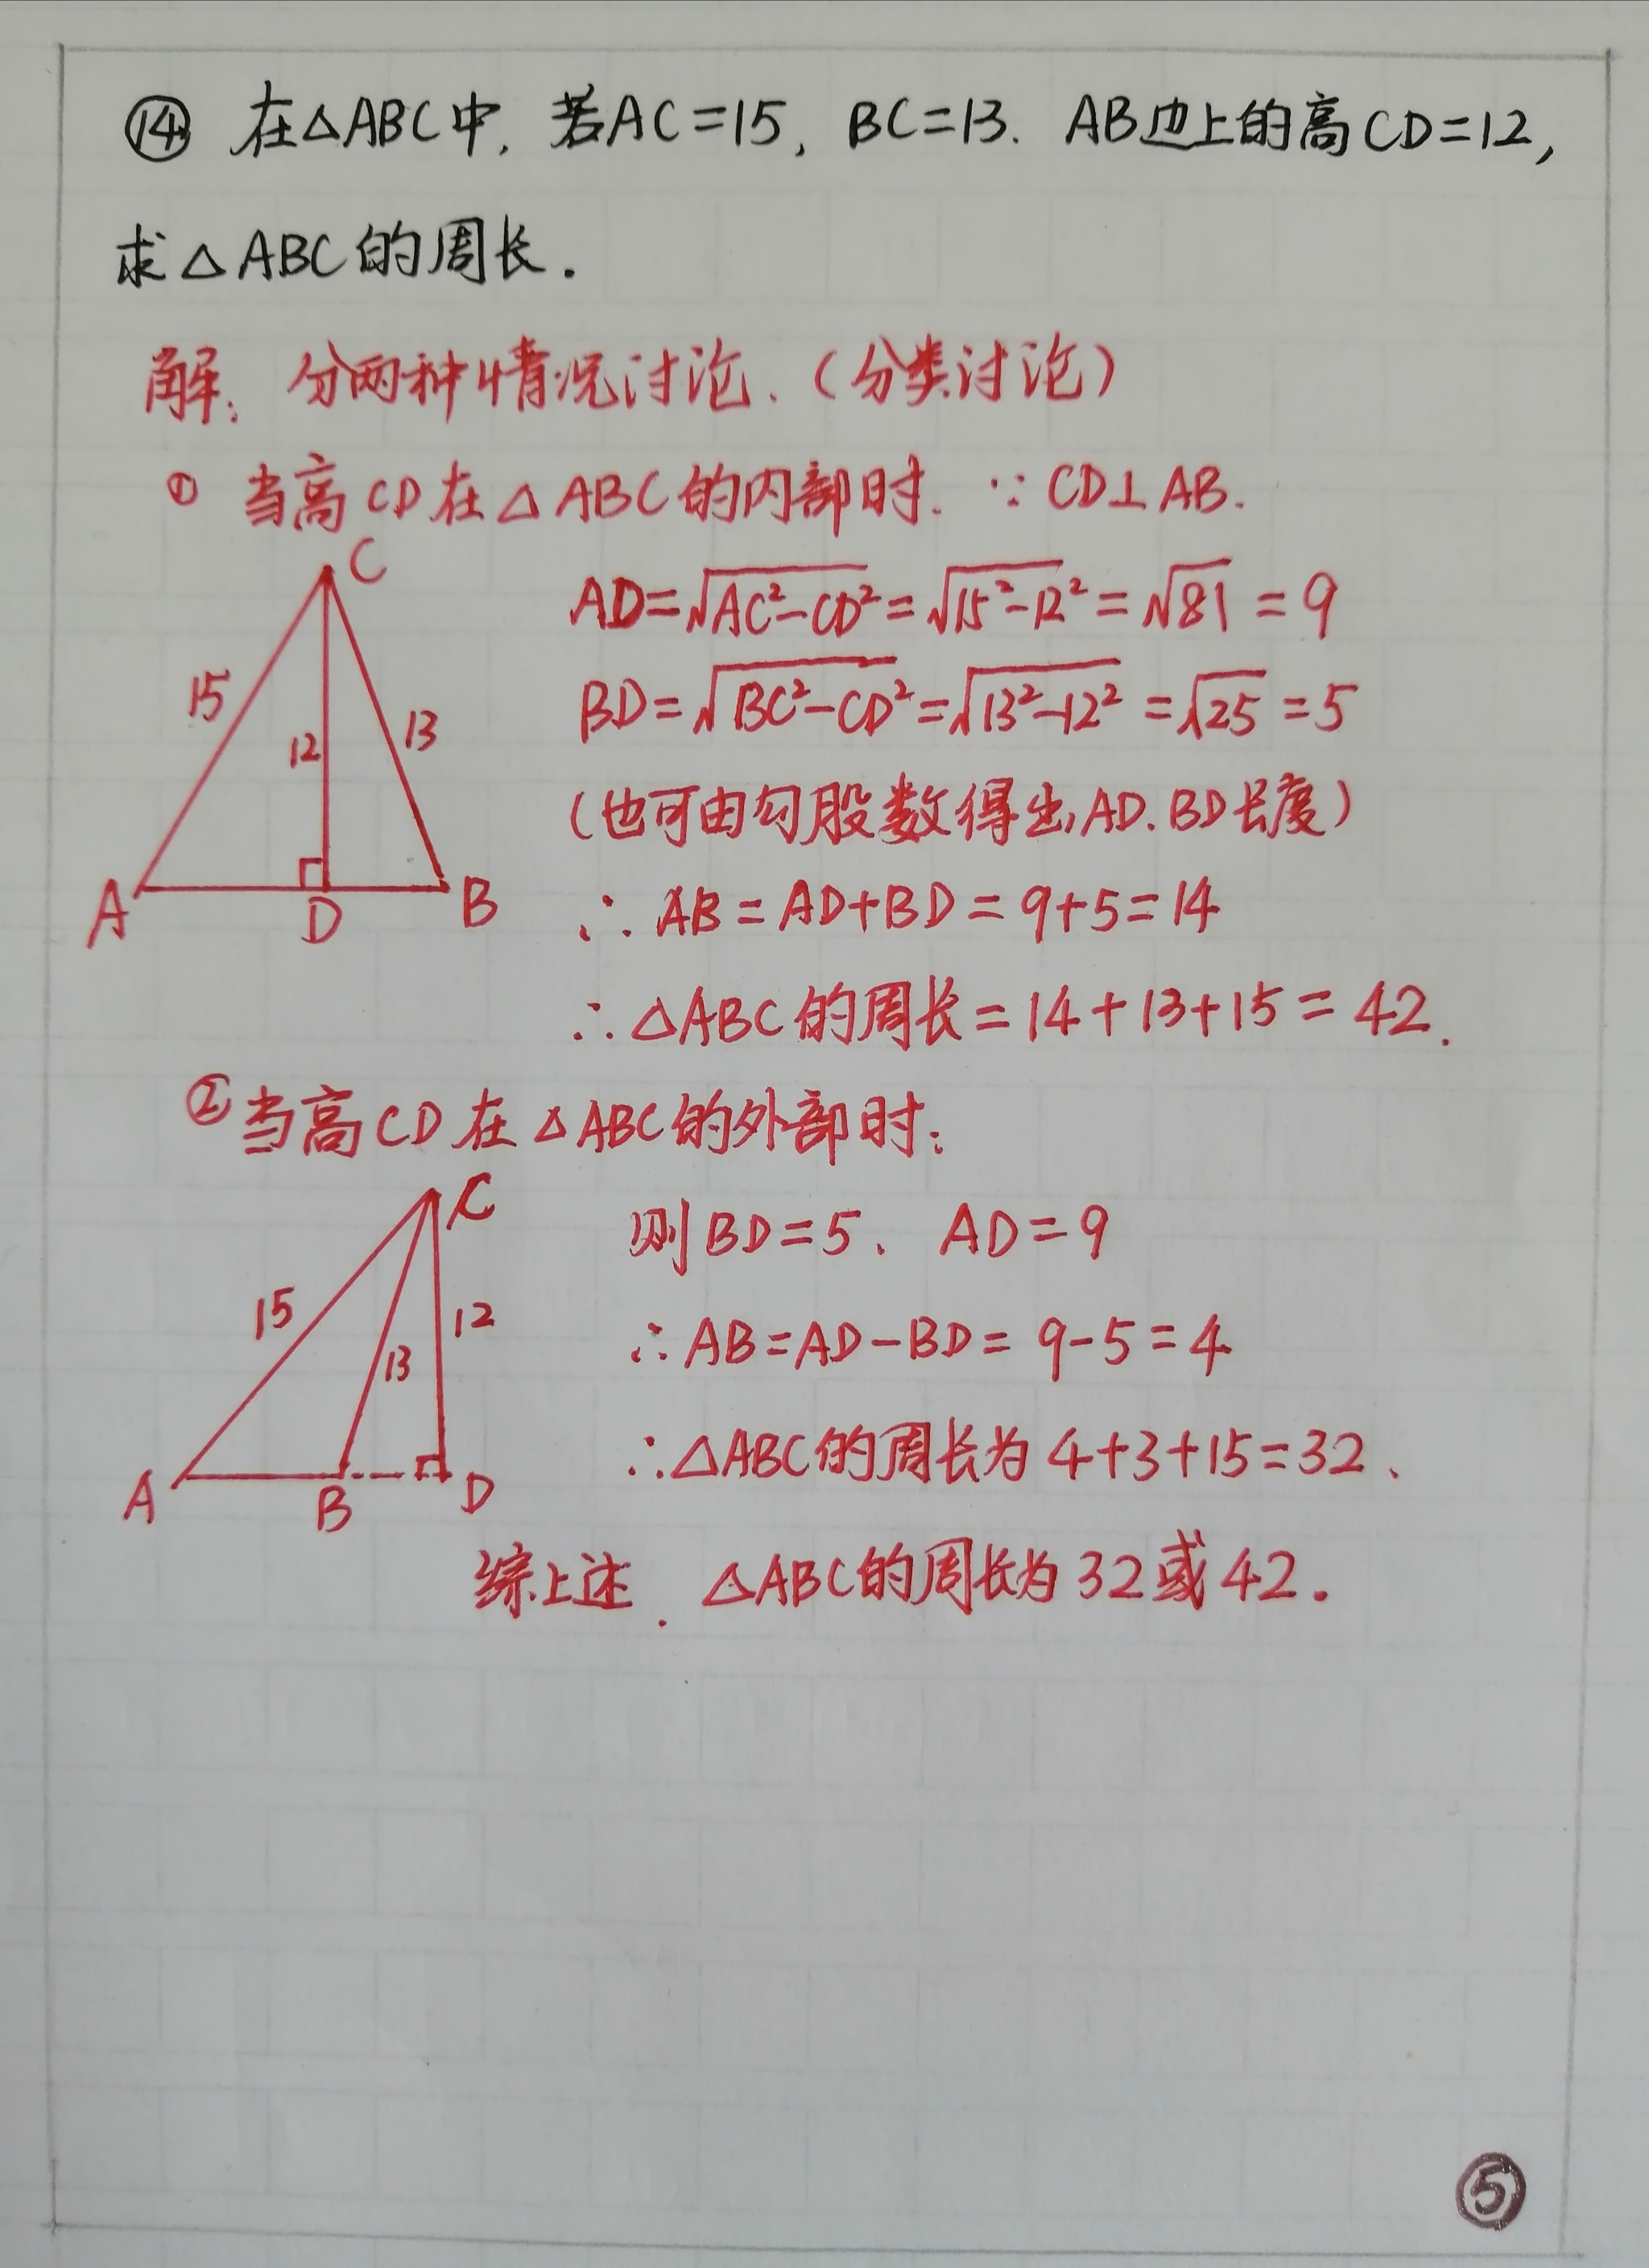 ⑭ 在△ABC中, 若AC=15, BC=13. AB边上的高CD=12,
求△ABC的周长.
解: 分两种情况讨论.(分类讨论)
① 当高CD在△ABC的内部时. ∵CD⊥AB.
C
AD=√AC²-CD²=√15²-12²=√81=9
15
12
13
BD=√BC²-CD²=√13²-12²=√25=5
(也可由勾股数得出AD.BD长度)
A
D
B
∴ AB=AD+BD=9+5=14
∴△ABC的周长=14+13+15=42.
②当高CD在△ABC的外部时:
C
则BD=5、AD=9
15
13
12
∴AB=AD-BD=9-5=4
∴△ABC的周长为4+3+15=32、
A
B
D
综上述. △ABC的周长为32或42.
⑤